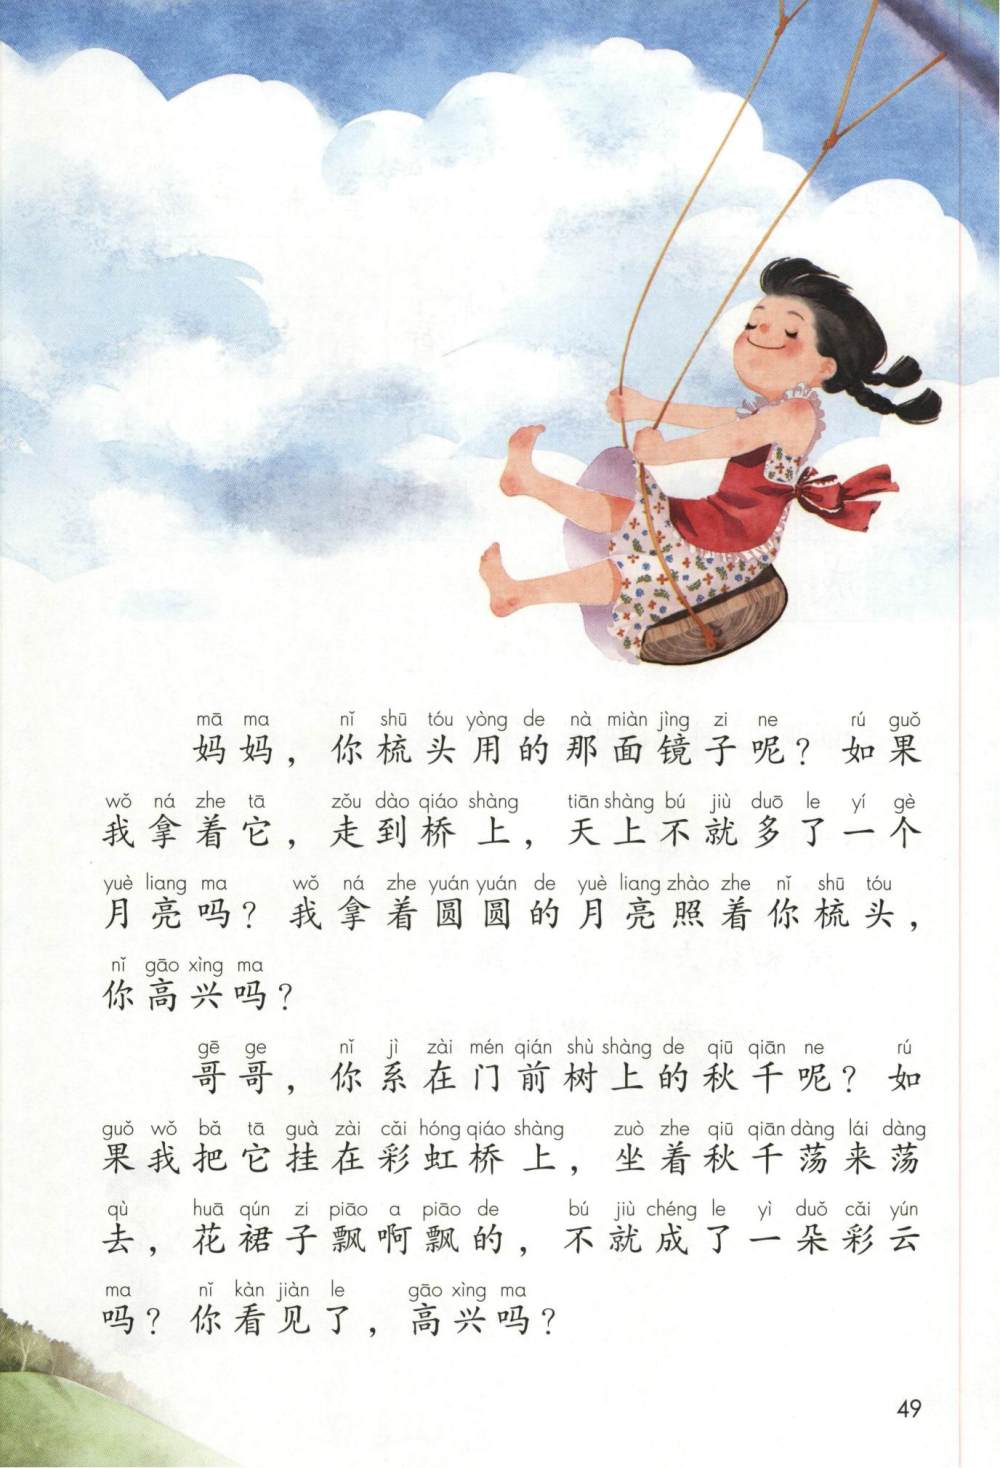 mā ma nǐ shū tóu yòng de nà miàn jìng zi ne rú guǒ
妈妈，你梳头用的那面镜子呢？如果
wǒ ná zhe tā zǒu dào qiáo shàng tiān shàng bú jiù duō le yí gè
我拿着它，走到桥上，天上不就多了一个
yuè liang ma wǒ ná zhe yuán yuán de yuè liang zhào zhe nǐ shū tóu
月亮吗？我拿着圆圆的月亮照着你梳头，
nǐ gāo xìng ma
你高兴吗？
gē ge nǐ jì zài mén qián shù shàng de qiū qiān ne rú
哥哥，你系在门前树上的秋千呢？如
guǒ wǒ bǎ tā guà zài cǎi hóng qiáo shàng zuò zhe qiū qiān dàng lái dàng
果我把它挂在彩虹桥上，坐着秋千荡来荡
qù huā qún zi piāo a piāo de bú jiù chéng le yì duǒ cǎi yún
去，花裙子飘啊飘的，不就成了一朵彩云
ma nǐ kàn jiàn le gāo xìng ma
吗？你看见了，高兴吗？
49